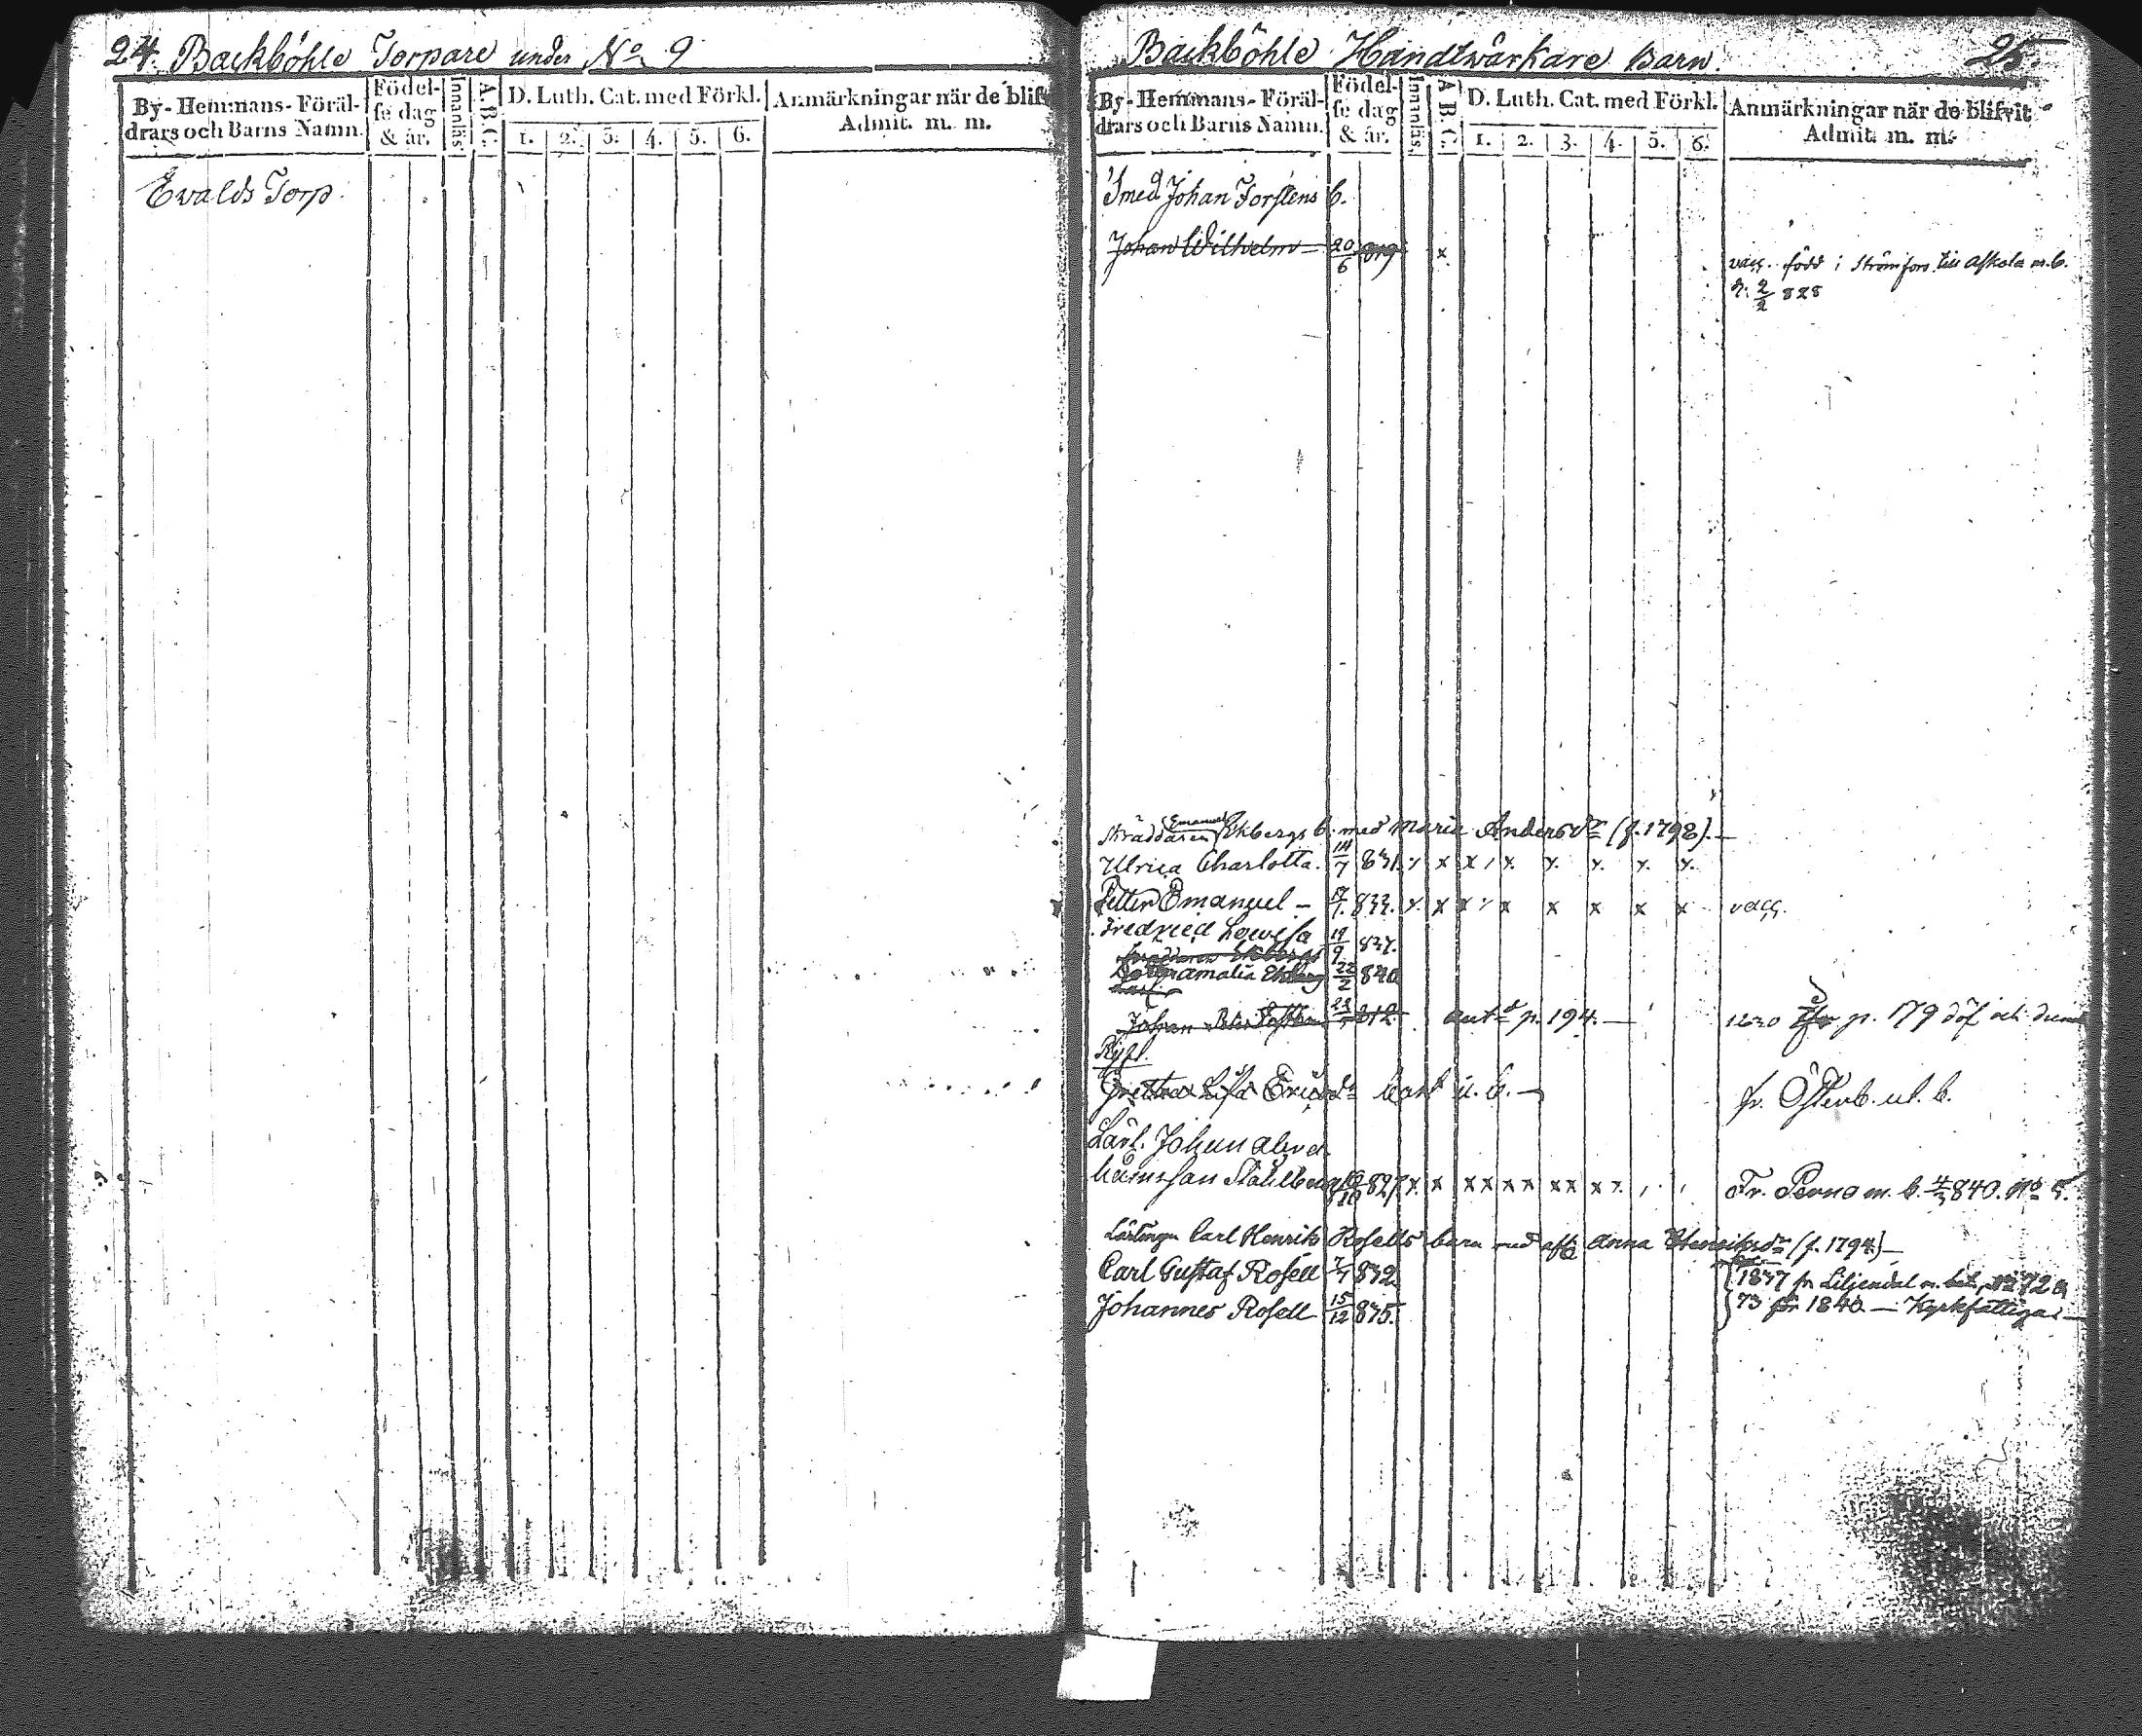 24. Backböhle Torpare under No 9
By- Hemmans- Föräl-
drars och Barns Namn.
Födel-
se dag
& år.
Innanläs.
A.B.C.
D. Luth. Cat. med Förkl.
1. 2. 3. 4. 5. 6.
Anmärkningar när de blifv
Admit. m. m.
Ewalds Torp.
Backböhle Handtwärkare Barn. 25.
By- Hemmans- Föräl-
drars och Barns Namn.
Födel-
se dag
& år.
Innanläs.
A.B.C.
D. Luth. Cat. med Förkl.
1. 2. 3. 4. 5. 6.
Anmärkningar när de blifvit
Admit. m. m.
Smed Johan Forstens b.
Johan Wilhelm 20/6 819 x vacc. född i Strömfors till Askola m.b.
2/2 828
Skräddaren Emanuel Ekbergs b. med Maria Andersdr (f. 1798).
Ulrica Charlotta. 14/7 831. x x x x x. x. x. x. x.
Petter Emanuel - 17/1. 833. x x x x x x x x x vacc.
Fredrica Lowisa 19/9 837.
amalia Ekberg 22/2 840
Johan 812. p. 194. p. 179 döf och dumb
Gretha Lisa Ericsdr u. b. fr. Österb. ut. b.
Lärl. Johan
Ståhlberg 827 x x x x x x x x x x Fr. Perno m. b. 840. No 5.
Lärlingen Carl Henrik Rosells barn med afl. Anna Henriksdr (f. 1794)
Carl Gustaf Rosell 832 1837 fr Liljendal m. bet. 72 &
Johannes Rosell 15/12 835. 73 för 1840 — Kyrkfattiga